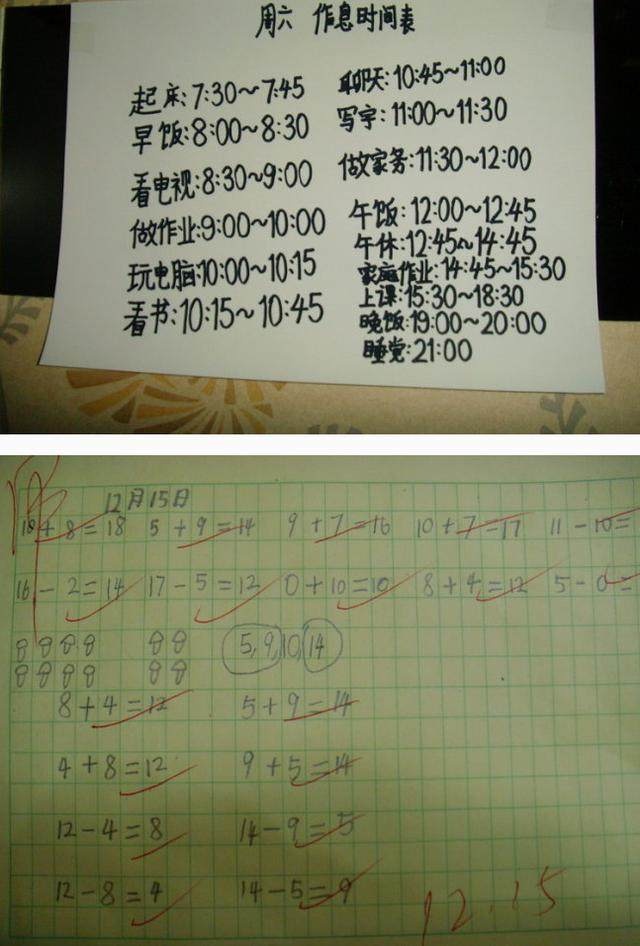 周六 作息时间表
起床:7:30~7:45
早饭:8:00~8:30
看电视:8:30~9:00
做作业:9:00~10:00
玩电脑:10:00~10:15
看书:10:15~10:45
聊天:10:45~11:00
写字:11:00~11:30
做家务:11:30~12:00
午饭:12:00~12:45
午休:12:45~14:45
家庭作业:14:45~15:30
上课:15:30~18:30
晚饭:19:00~20:00
睡觉:21:00
12月15日
10+8=18 5+9=14 9+7=16 10+7=17 11-10=
16-2=14 17-5=12 0+10=10 8+4=12 5-0=
5,9,10,14
8+4=12 5+9=14
4+8=12 9+5=14
12-4=8 14-9=5
12-8=4 14-5=9
12.15